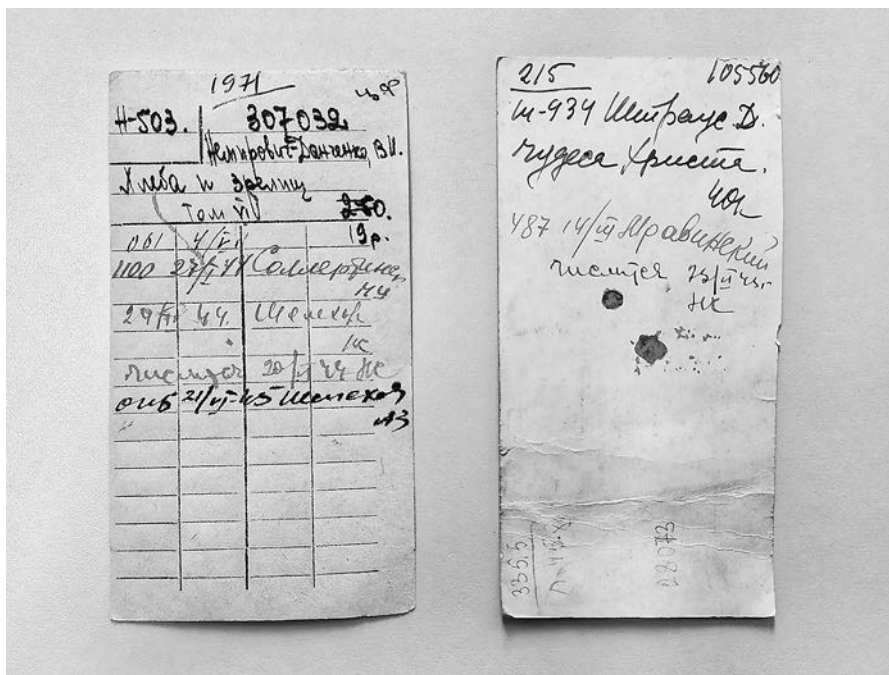 1971
ц.ф
Н-503. 307032
Немирович-Данченко, В.И.
Хлеба и зрелищ
Том VI 250.
061 4/VI 19р.
1100 27/II 44 Соллертинск
29/ 44. Шелехов
НС
числится 20/ 44 НС
0415 21/VI-45 Шелехов
АЗ
215 105560
Ш-934 Штраус Д.
Чудеса Христа.
40к
487 14/III Мравинский
числится 23/II 44г.
НС
335,5
28073